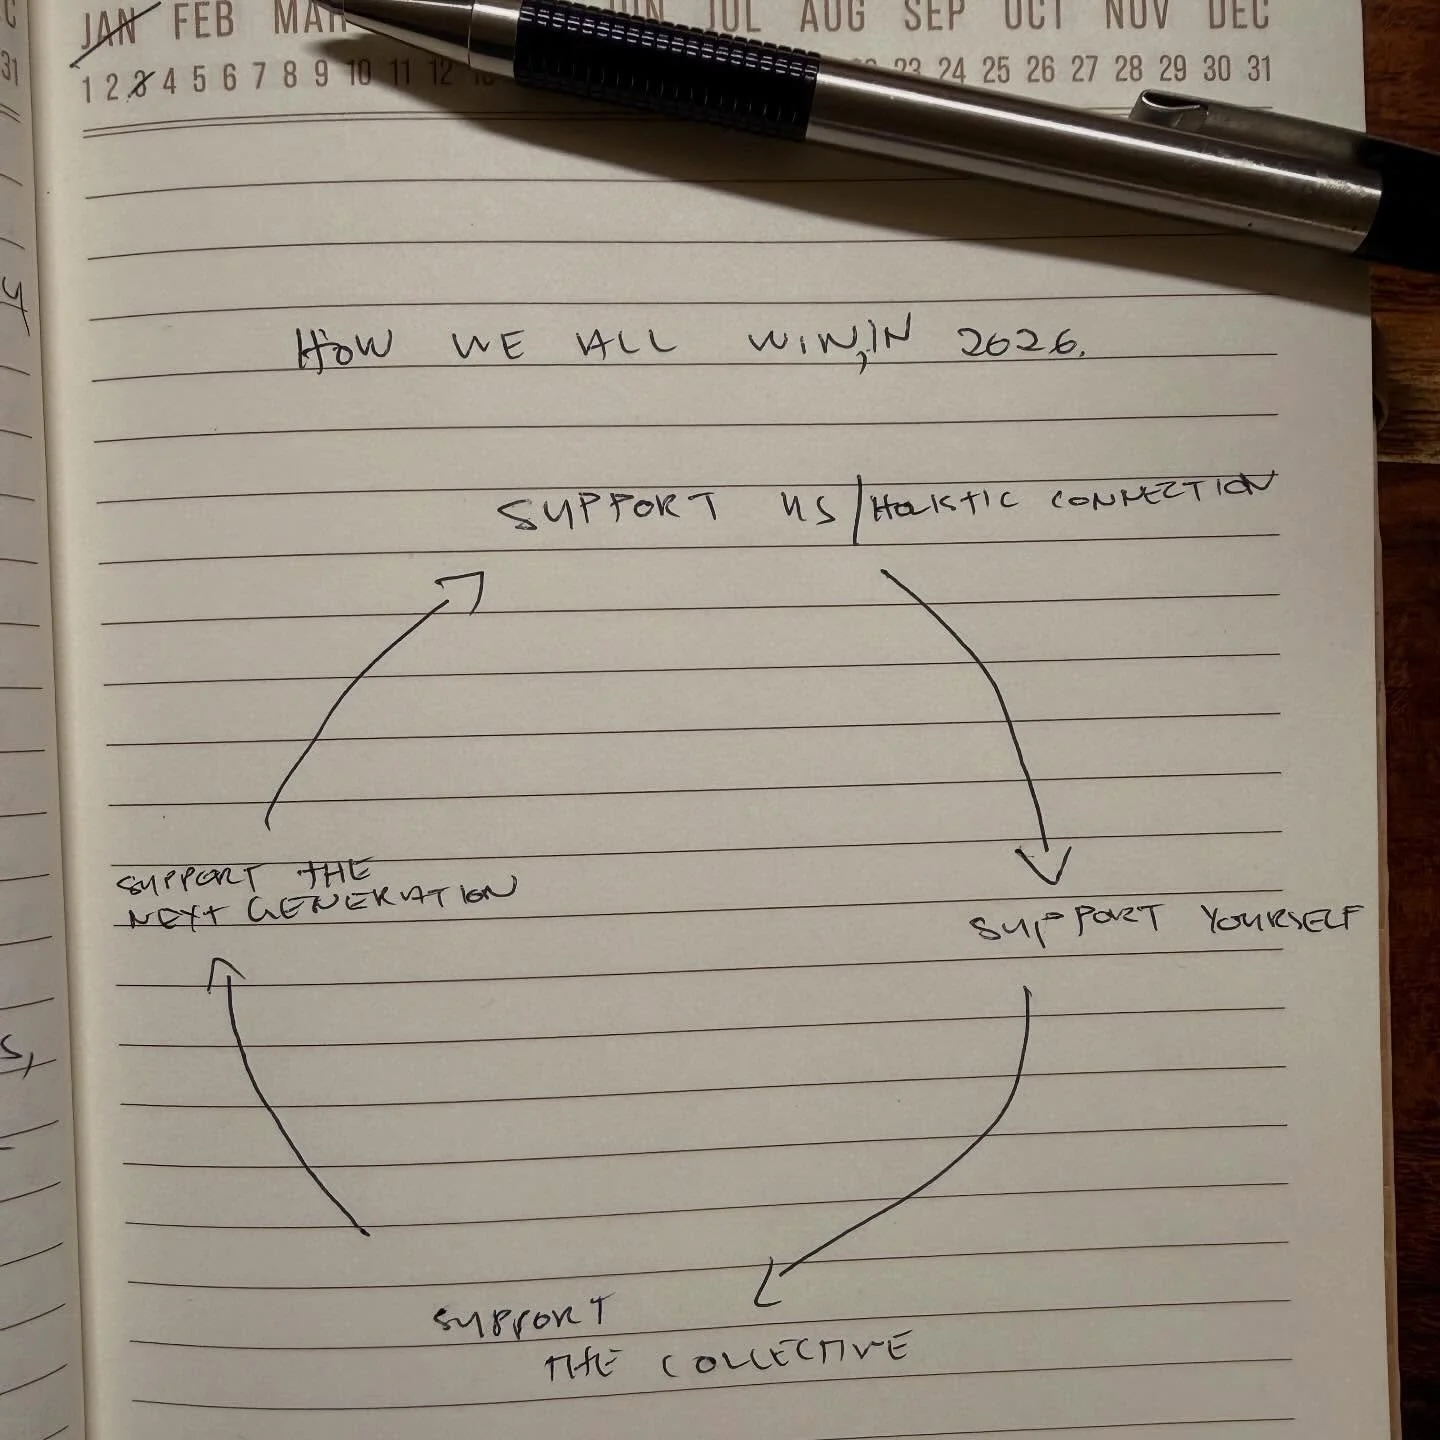 JAN FEB MAR JUN JUL AUG SEP OCT NOV DEC
1 2 3 4 5 6 7 8 9 10 11 12 23 24 25 26 27 28 29 30 31
31
HOW WE ALL WIN, IN 2026.
SUPPORT US/HOLISTIC CONNECTION
SUPPORT THE
NEXT GENERATION
SUPPORT YOURSELF
SUPPORT
THE COLLECTIVE